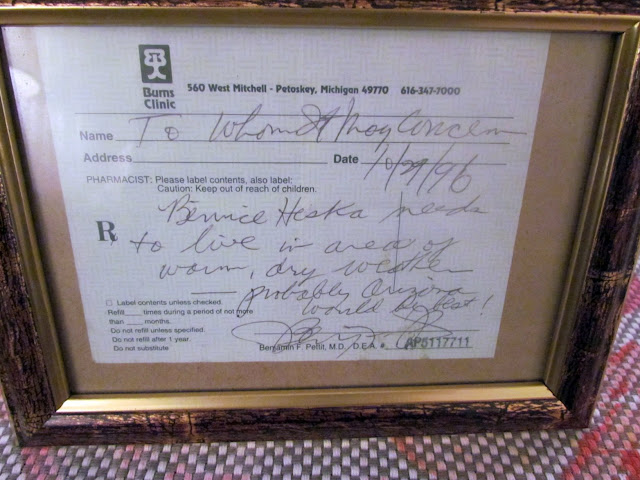 Burns
Clinic
560 West Mitchell - Petoskey, Michigan 49770 616-347-7000
Name To Whom It May Concern
Address Date 10/29/96
PHARMACIST: Please label contents, also label:
Caution: Keep out of reach of children.
℞
Bernice Heska needs
to live in area of
warm, dry weather
probably Arizona
would be best!
☐ Label contents unless checked.
Refill ____ times during a period of not more
than ____ months.
Do not refill unless specified.
Do not refill after 1 year.
Do not substitute
Benjamin F. Pettit, M.D. D.E.A. # AP5117711